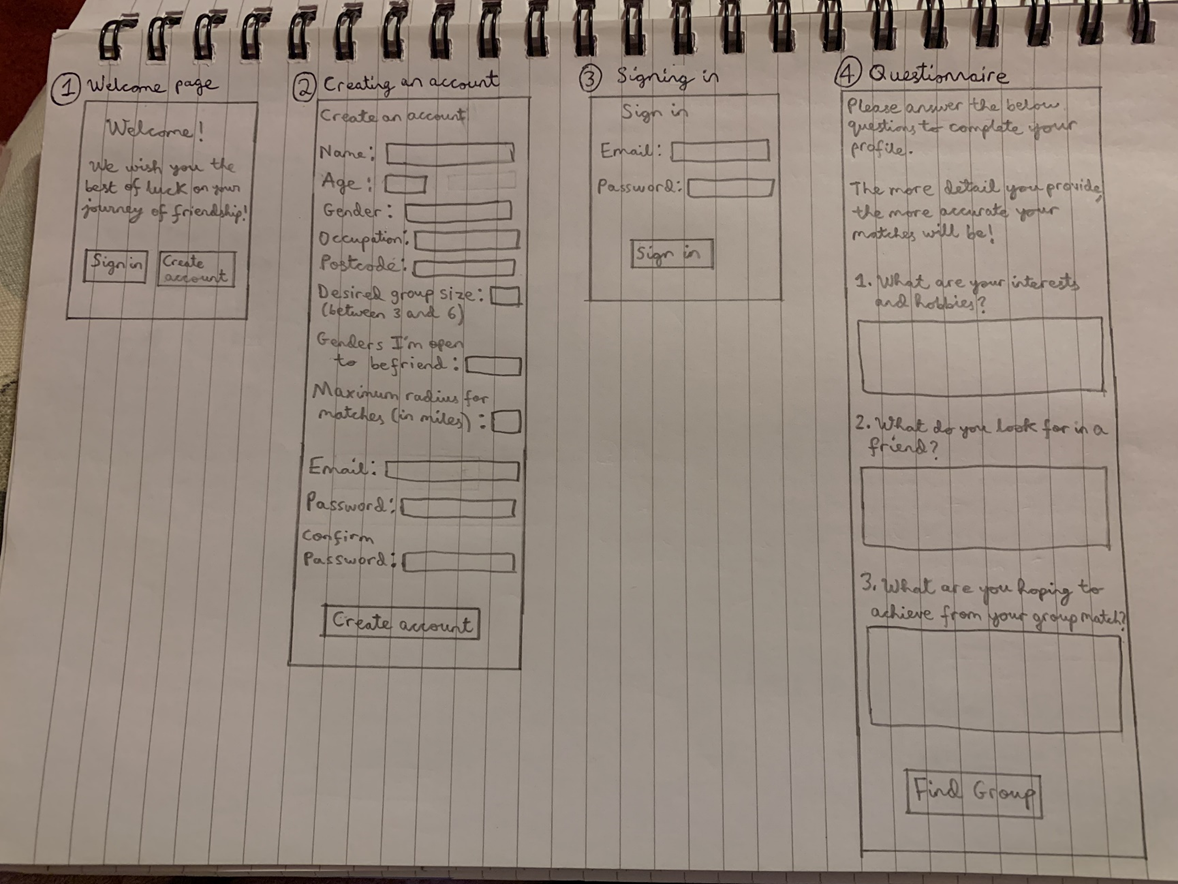 1 Welcome page
Welcome!
We wish you the
best of luck on your
journey of friendship!
Sign in
Create
account
2 Creating an account
Create an account
Name:
Age:
Gender:
Occupation:
Postcode:
Desired group size:
(between 3 and 6)
Genders I'm open
to befriend:
Maximum radius for
matches (in miles):
Email:
Password:
Confirm
Password:
Create account
3 Signing in
Sign in
Email:
Password:
Sign in
4 Questionnaire
Please answer the below
questions to complete your
profile.
The more detail you provide,
the more accurate your
matches will be!
1. What are your interests
and hobbies?
2. What do you look for in a
friend?
3. What are you hoping to
achieve from your group match?
Find Group